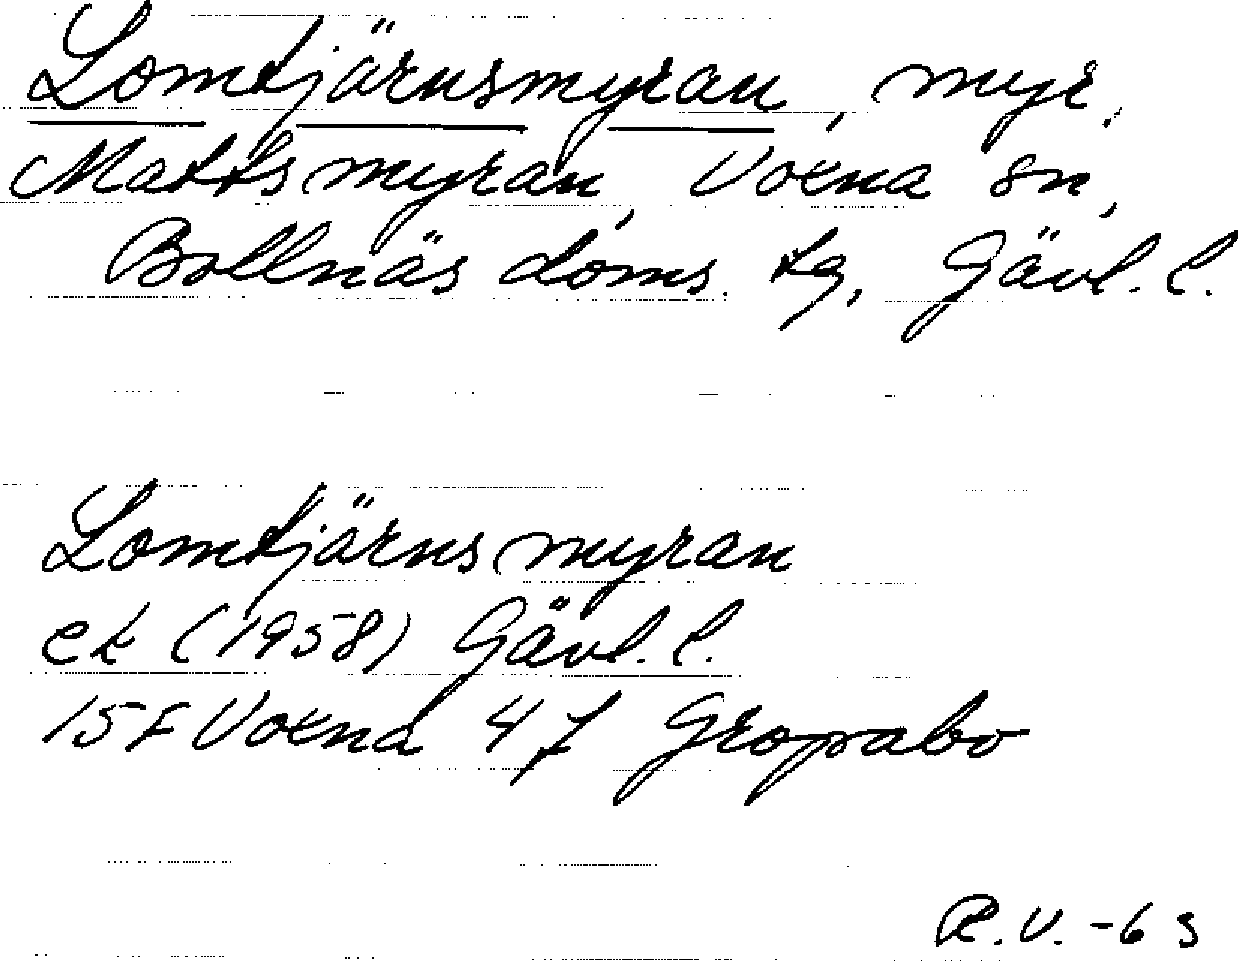 Lomtjärnsmyran, myr,
Mattsmyran, Voxna sn,
Bollnäs doms. tg, Gävl. l.
Lomtjärnsmyran
ek (1958) Gävl. l.
15F Voxna 4 f Gropabo
R.V. -63